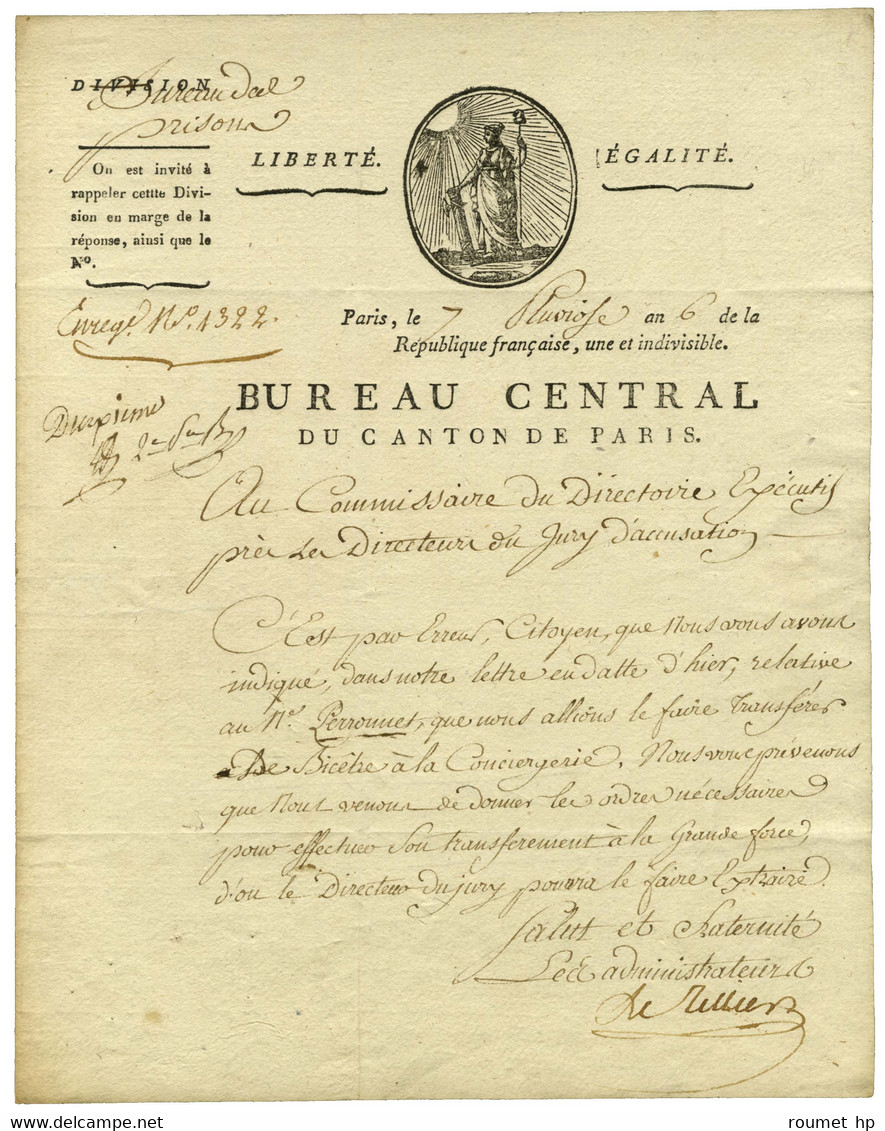 DIVISION
Bureau des
prisons
On est invité à
rappeler cettte Divi-
sion en marge de la
réponse, ainsi que le
N.o
LIBERTÉ.
ÉGALITÉ.
Enregé. No. 1322.
Paris, le 7 Pluviose an 6 de la
République française, une et indivisible.
BUREAU CENTRAL
DU CANTON DE PARIS.
Au Commissaire du Directoire Exécutif
près les Directeurs du Jury d'accusation
C'Est par Erreur, Citoyen, que Nous vous avons
indiqué, dans notre lettre en datte d'hier, relative
au Né. Perronnet, que nous allions le faire transférer
De Bicêtre à la Conciergerie. Nous vous prévenons
que Nous venons de donner les ordres nécessaires
pour effectuer Son transferement à la Grande force,
d'ou le Directeur du jury pourra le faire Extraire.
Salut et Fraternité
Les administrateurs